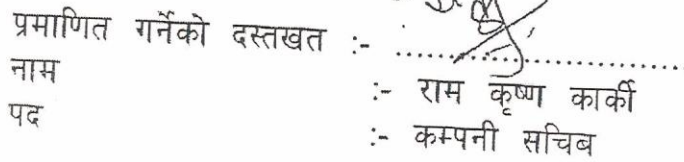 प्रमाणित गर्नेको दस्तखत :- ........................
नाम :- राम कृष्ण कार्की
पद :- कम्पनी सचिब